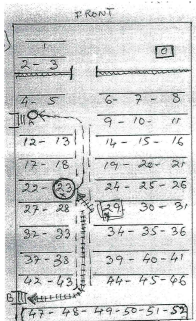 FRONT
1
2 - 3
C
4 - 5 6 - 7 - 8
A 9 - 10 - 11
12 - 13 14 - 15 - 16
17 - 18 19 - 20 - 21
22 - 23 24 - 25 - 26
27 - 28 29 30 - 31
32 - 33 34 - 35 - 36
37 - 38 39 - 40 - 41
42 - 43 44 - 45 - 46
B
47 - 48 - 49 - 50 - 51 - 52